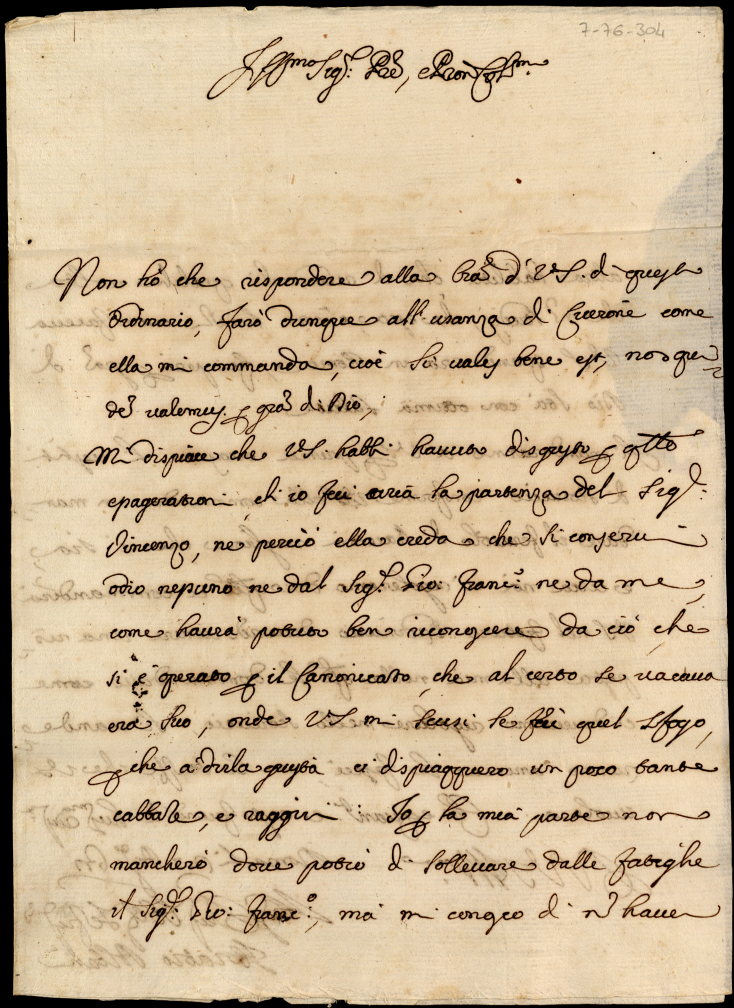 7-76-304
Ill.mo Sig.r P.re, e Pron Col.mo
Non hò che rispondere alla l'ra d' V.S. di questo
Ordinario, farò dunque all' usanza di Cicerone come
ella mi commanda, cioè Si vales bene est, nos qui
dem valemus p gra di Dio;
Mi dispiace che V.S. habbi hauuto disgusto p
che io feci circa la partenza del Sig.r
Vincenzo, ne perciò ella creda che si conserui
odio nessuno ne dal Sig.r Gio: Franc.o ne da me,
come haurà potuto ben riconoscere da ciò, che
si è operato p il Canonicato, che al certo se vacaua
era suo, onde V.S. mi scusi se feci quel sfogo,
p che a dirla giusta ci dispiacquero un poco tante
cabbale, e raggiri: Io p la mia parte non
mancherò doue potrò di solleuare dalle fatighe
il Sig.r Gio: Franc.o, mà mi conosco di n hauer